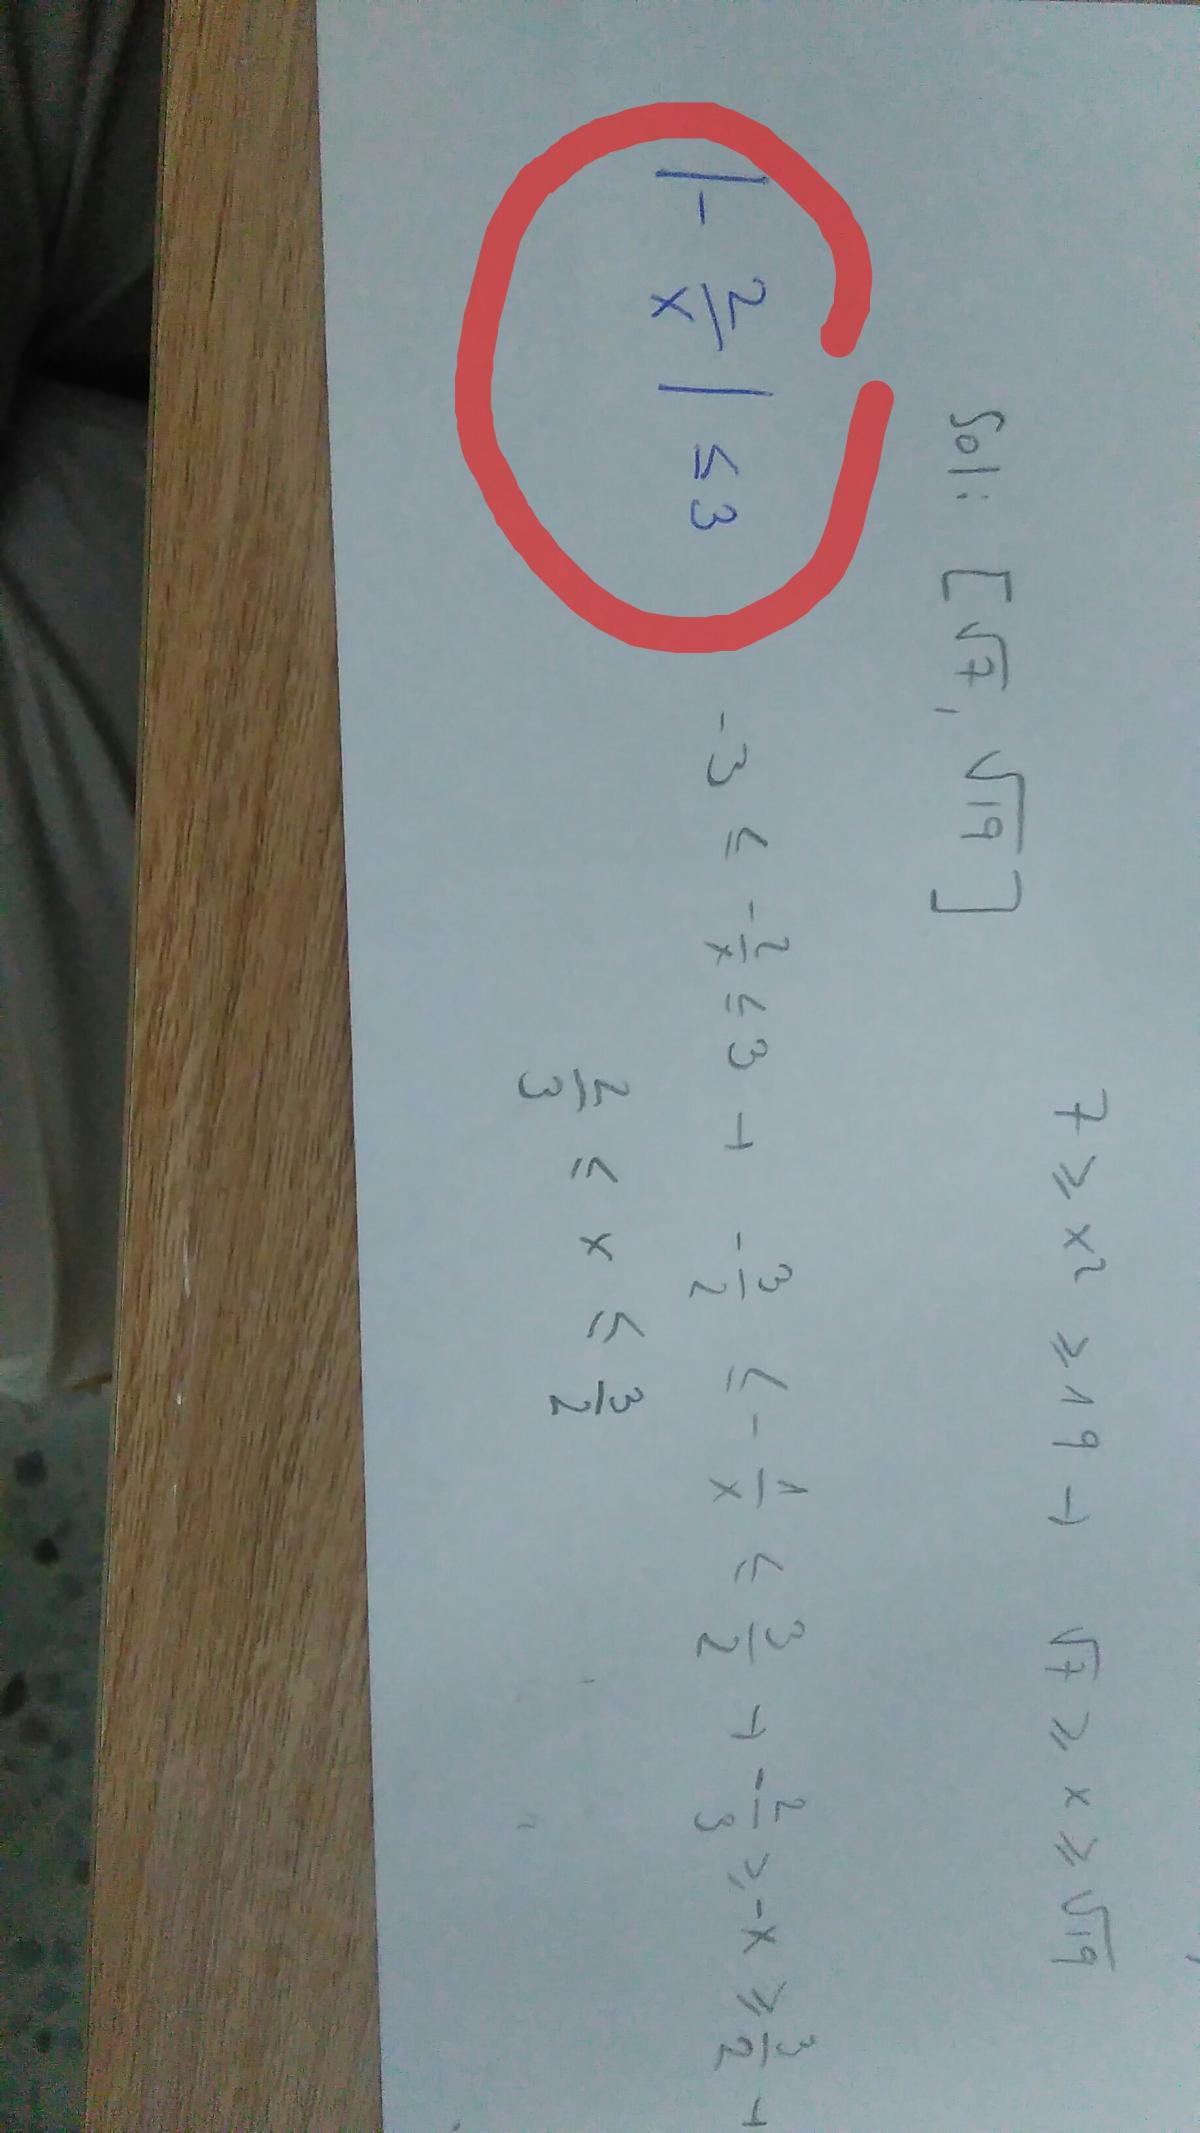 7 ≥ x² ≥ 19 → √7 ≥ x ≥ √19
Sol: [√7, √19]
|-2/x| ≤ 3 -3 ≤ -2/x ≤ 3 → -3/2 ≤ -1/x ≤ 3/2 → -2/3 ≥ -x ≥ 3/2 →
2/3 ≤ x ≤ 3/2